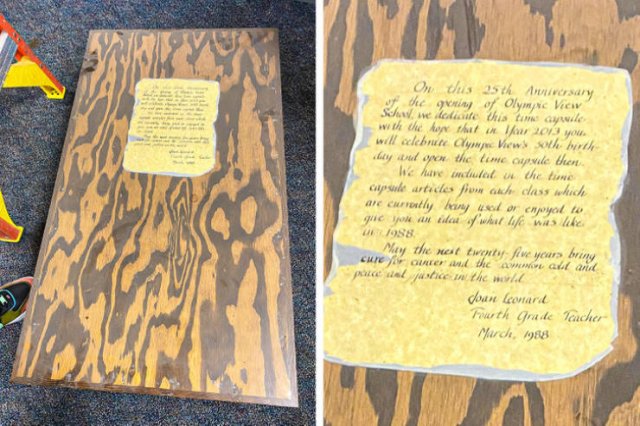 On this 25th Anniversary
of the opening of Olympic View
School, we dedicate this time capsule
with the hope that in Year 2013 you
will celebrate Olympic View's 50th birth-
day and open the time capsule then.
We have included in the time
capsule articles from each class which
are currently being used or enjoyed to
give you an idea of what life was like
in 1988.
May the next twenty-five years bring
cure for cancer and the common cold and
peace and justice in the world.
Joan Leonard
Fourth Grade Teacher
March, 1988